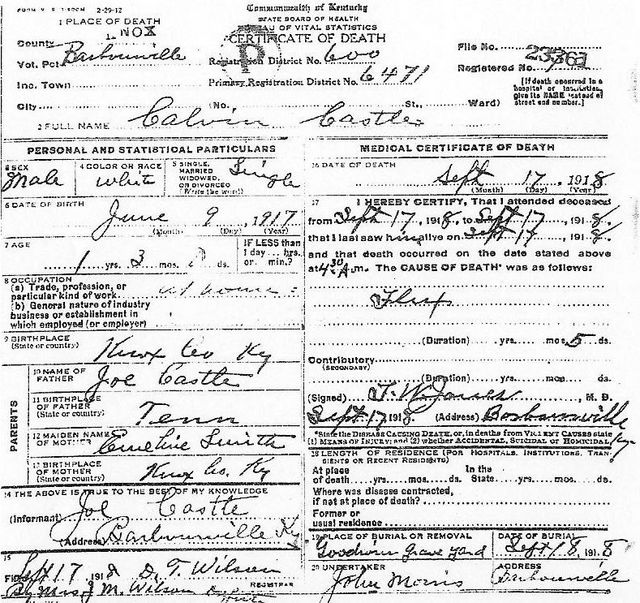 2-29-12
Commonwealth of Kentucky
STATE BOARD OF HEALTH
BUREAU OF VITAL STATISTICS
CERTIFICATE OF DEATH
1 PLACE OF DEATH
County KNOX
Vot. Pct. Barbourville
Inc. Town
City
Registration District No. 600
Primary Registration District No. 6471
(No. St., Ward)
File No.
Registered No.
[If death occurred in a hospital or institution, give its NAME instead of street and number.]
2 FULL NAME Calvin Castle
PERSONAL AND STATISTICAL PARTICULARS
3 SEX Male
4 COLOR OR RACE White
5 SINGLE, MARRIED WIDOWED, OR DIVORCED (Write the word) Single
6 DATE OF BIRTH June 9, 1917
(Month) (Day) (Year)
7 AGE 1 yrs. 3 mos. ds.
IF LESS than 1 day... hrs. or min.?
8 OCCUPATION
(a) Trade, profession, or particular kind of work at home
(b) General nature of industry business or establishment in which employed (or employer)
9 BIRTHPLACE (State or country) Knox Co Ky
PARENTS
10 NAME OF FATHER Joe Castle
11 BIRTHPLACE OF FATHER (State or country) Tenn
12 MAIDEN NAME OF MOTHER Emeline Smith
13 BIRTHPLACE OF MOTHER (State or country) Knox Co. Ky
14 THE ABOVE IS TRUE TO THE BEST OF MY KNOWLEDGE
(Informant) Joe Castle
(Address) Barbourville Ky
15
Filed Sept 17 1918 D. T. Wilson
By Mrs J M. Wilson REGISTRAR
MEDICAL CERTIFICATE OF DEATH
16 DATE OF DEATH Sept 17 1918
(Month) (Day) (Year)
17 I HEREBY CERTIFY, That I attended deceased
from Sept 17, 1918, to Sept 17, 1918,
that I last saw him alive on Sept 17, 1918,
and that death occurred on the date stated above
at 4:30 A m. The CAUSE OF DEATH* was as follows:
Flux
(Duration) yrs. mos. 5 ds.
Contributory (SECONDARY)
(Duration) yrs. mos. ds.
(Signed) M. D.
Sept. 17 1918 (Address) Barbourville Ky
*State the DISEASE CAUSING DEATH, or, in deaths from VIOLENT CAUSES state (1) MEANS OF INJURY; and (2) whether ACCIDENTAL, SUICIDAL or HOMICIDAL.
18 LENGTH OF RESIDENCE (FOR HOSPITALS, INSTITUTIONS, TRANSIENTS OR RECENT RESIDENTS)
At place of death yrs. mos. ds. In the State yrs. mos. ds.
Where was disease contracted, if not at place of death?
Former or usual residence
19 PLACE OF BURIAL OR REMOVAL Goodwin Grave Yard
DATE OF BURIAL Sept 18, 1918
20 UNDERTAKER John Morris
ADDRESS Barbourville